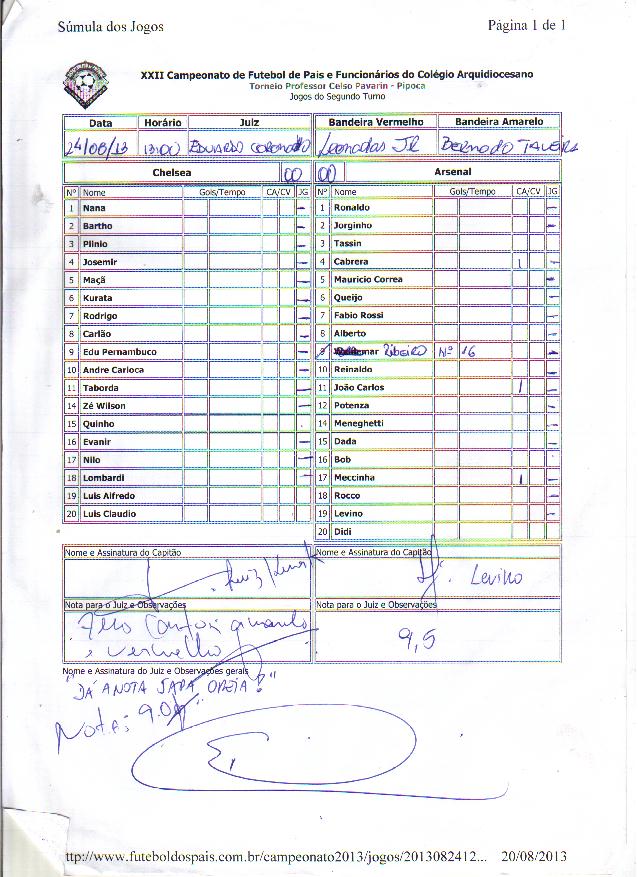 Súmula dos Jogos Página 1 de 1
XXII Campeonato de Futebol de Pais e Funcionários do Colégio Arquidiocesano
Torneio Professor Celso Pavarin - Pipoca
Jogos do Segundo Turno
Data Horário Juiz Bandeira Vermelho Bandeira Amarelo
24/08/13 13:00 EDUARDO CORONADO Leonadas JR BERNADO TAVEIRA
Chelsea 00 00 Arsenal
Nº Nome Gols/Tempo CA/CV JG Nº Nome Gols/Tempo CA/CV JG
1 Nana - 1 Ronaldo -
2 Bartho - 2 Jorginho -
3 Plinio - 3 Tassin -
4 Josemir - 4 Cabrera 1 -
5 Maçã - 5 Mauricio Correa -
6 Kurata - 6 Queijo -
7 Rodrigo - 7 Fabio Rossi -
8 Carlão - 8 Alberto -
9 Edu Pernambuco - Ribeiro Nº 16 -
10 Andre Carioca - 10 Reinaldo -
11 Taborda - 11 João Carlos 1 -
14 Zé Wilson - 12 Potenza -
15 Quinho 14 Meneghetti -
16 Evanir - 15 Dada -
17 Nilo - 16 Bob
18 Lombardi - 17 Meccinha 1 -
19 Luis Alfredo 18 Rocco -
20 Luis Claudio 19 Levino -
20 Didi
Nome e Assinatura do Capitão Nome e Assinatura do Capitão
Levino
Nota para o Juiz e Observações Nota para o Juiz e Observações
amarelo
e vermelho
9,5
Nome e Assinatura do Juiz e Observações gerais
"DÁ A NOTA
Nota: 9.0
ttp://www.futeboldospais.com.br/campeonato2013/jogos/2013082412... 20/08/2013